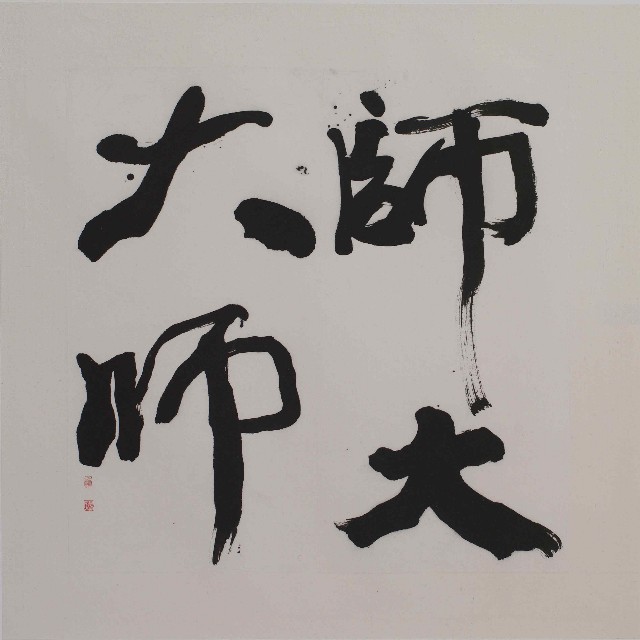 師大
大师